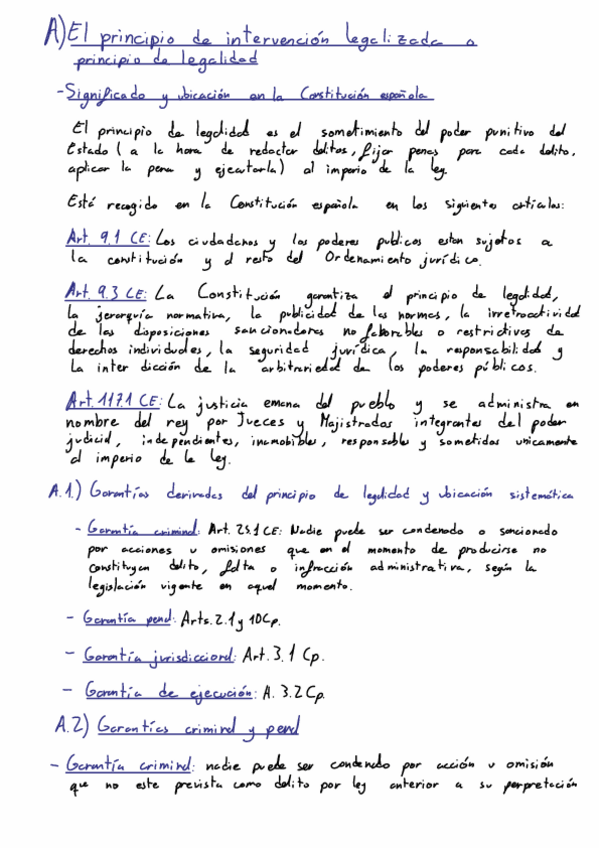 A) El principio de intervención legalizada o
principio de legalidad
- Significado y ubicación en la Constitución española
El principio de legalidad es el sometimiento del poder punitivo del
Estado ( a la hora de redactar delitos, fijar penas para cada delito,
aplicar la pena y ejecutarla) al imperio de la ley.
Está recogido en la Constitución española en los siguientes artículos:
Art. 9.1 CE: Los ciudadanos y los poderes publicos estan sujetos a
la constitución y al resto del Ordenamiento jurídico.
Art. 9.3 CE: La Constitución garantiza el principio de legalidad,
la jerarquía normativa, la publicidad de las normas, la irretroactividad
de las disposiciones sancionadoras no favorables o restrictivas de
derechos individuales, la seguridad jurídica, la responsabilidad y
la interdicción de la arbitrariedad de los poderes públicos.
Art. 117.1 CE: La justicia emana del pueblo y se administra en
nombre del rey por Jueces y Magistrados integrantes del poder
judicial, independientes, inamobibles, responsables y sometidos unicamente
al imperio de la ley.
A.1.) Garantías derivadas del principio de legalidad y ubicación sistemática
- Garantía criminal: Art. 25.1 CE: Nadie puede ser condenado o sancionado
por acciones u omisiones que en el momento de producirse no
constituyan delito, falta o infracción administrativa, según la
legislación vigente en aquel momento.
- Garantía penal: Arts. 2.1 y 10 Cp.
- Garantía jurisdiccional: Art. 3.1 Cp.
- Garantía de ejecución: A. 3.2 Cp.
A.2) Garantías criminal y penal
- Garantía criminal: nadie puede ser condenado por acción u omisión
que no este prevista como delito por ley anterior a su perpretación